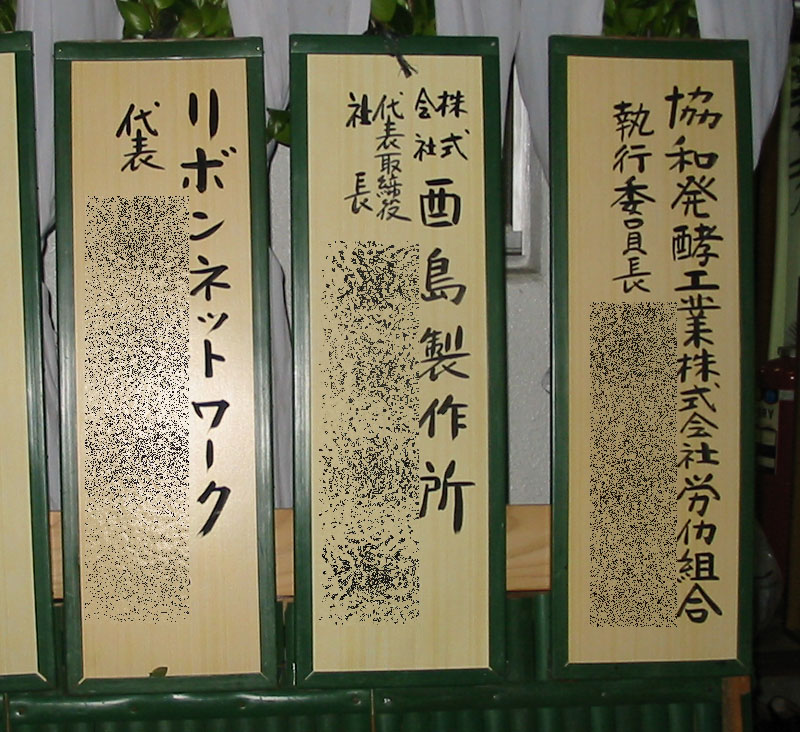 協和発酵工業株式会社労仂組合
執行委員長
株式会社 酉島製作所
代表取締役
社長
リボンネットワーク
代表